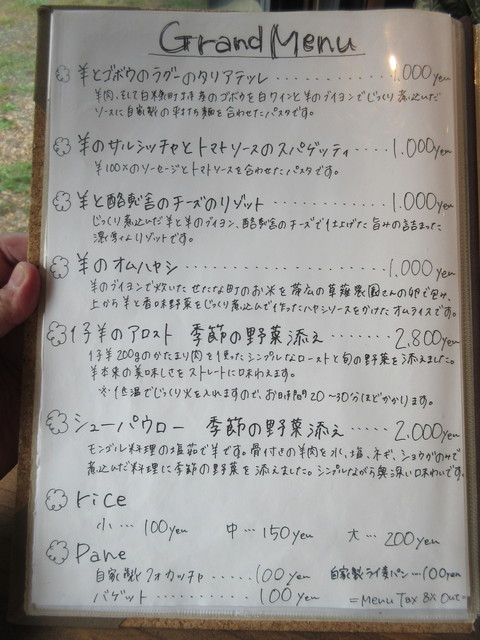 Grand Menu
羊とゴボウのラグーのタリアテッレ ............ 1.000yen
羊肉、そして白糠町 産のゴボウを白ワインと羊のブイヨンでじっくり煮込んだ
ソースに自家製の平打ち麺を合わせたパスタです。
羊のサルシッチャとトマトソースのスパゲッティ ..... 1.000yen
羊100%のソーセージとトマトソースを合わせたパスタです。
羊と酪恵舎のチーズのリゾット ............ 1.000yen
じっくり煮込んだ羊と羊のブイヨン、酪恵舎のチーズで仕上げた旨みの詰まった
濃厚なリゾットです。
羊のオムハヤシ ...................... 1.000yen
羊のブイヨンで炊いたせたな町のお米を帯広の草薙農園さんの卵で包み、
上から羊と香味野菜をじっくり煮込んで作ったハヤシソースをかけたオムライスです。
仔羊のアロスト 季節の野菜添え ....... 2.800yen
仔羊200gのかたまり肉を使ったシンプルなローストと旬の野菜を添えました。
羊本来の美味しさをストレートに味わえます。
※低温でじっくり火を入れますので、お時間20~30分ほどかかります。
シューパウロー 季節の野菜添え ..... 2.000yen
モンゴル料理の塩茹で羊です。骨付きの羊肉を水、塩、ネギ、ショウガのみで
煮込んだ料理に季節の野菜を添えました。シンプルながら奥深い味わいです。
rice
小 … 100yen 中 … 150yen 大 … 200yen
Pane
自家製フォカッチャ ..... 100yen 自家製ライ麦パン … 100yen
バゲット ............ 100yen = Menu Tax 8% Out =